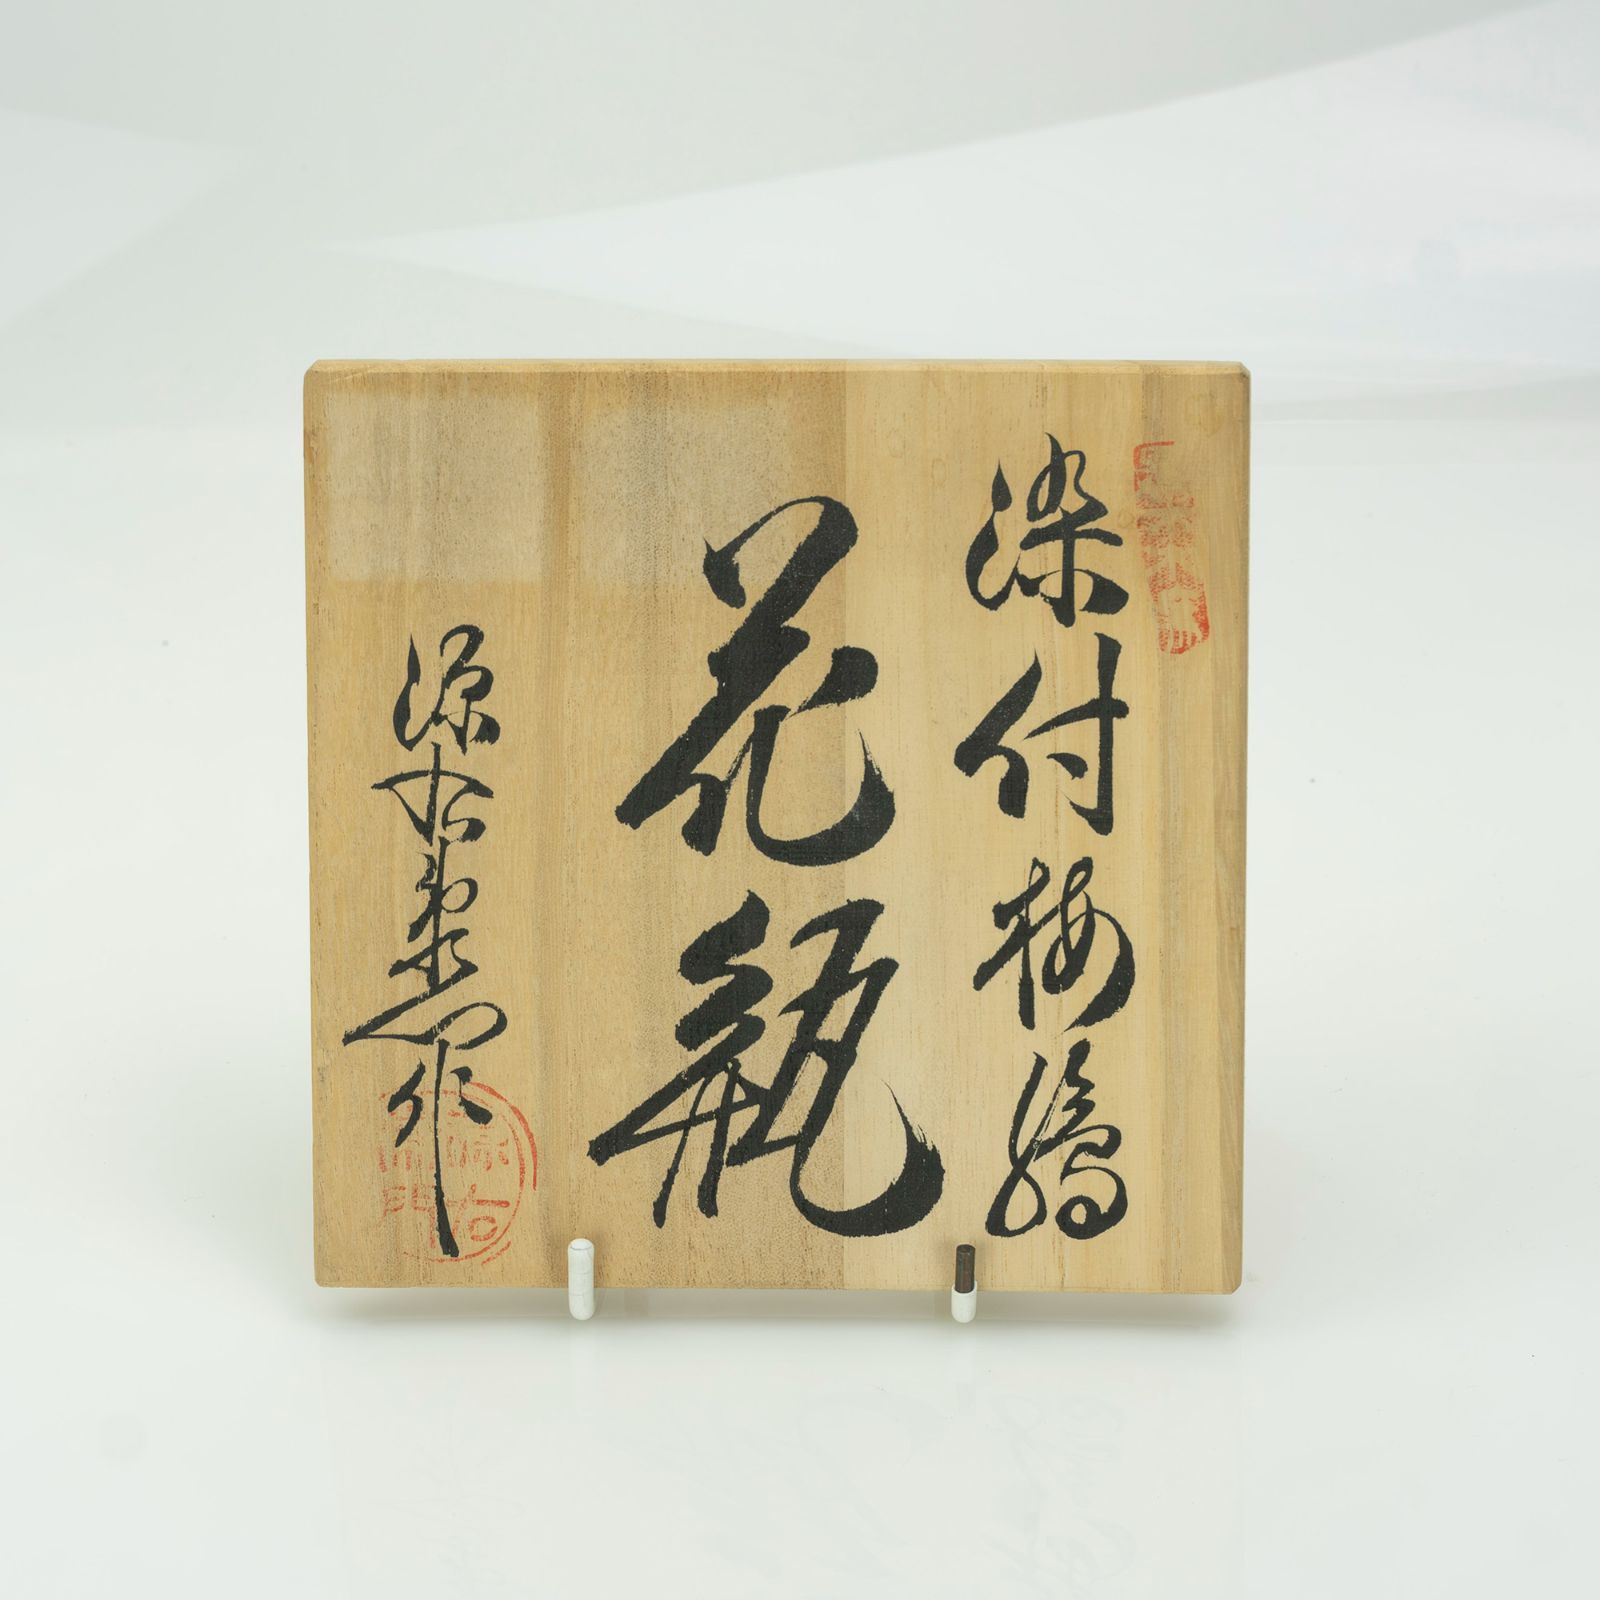 染付梅鶯
花瓶
源右衛門作